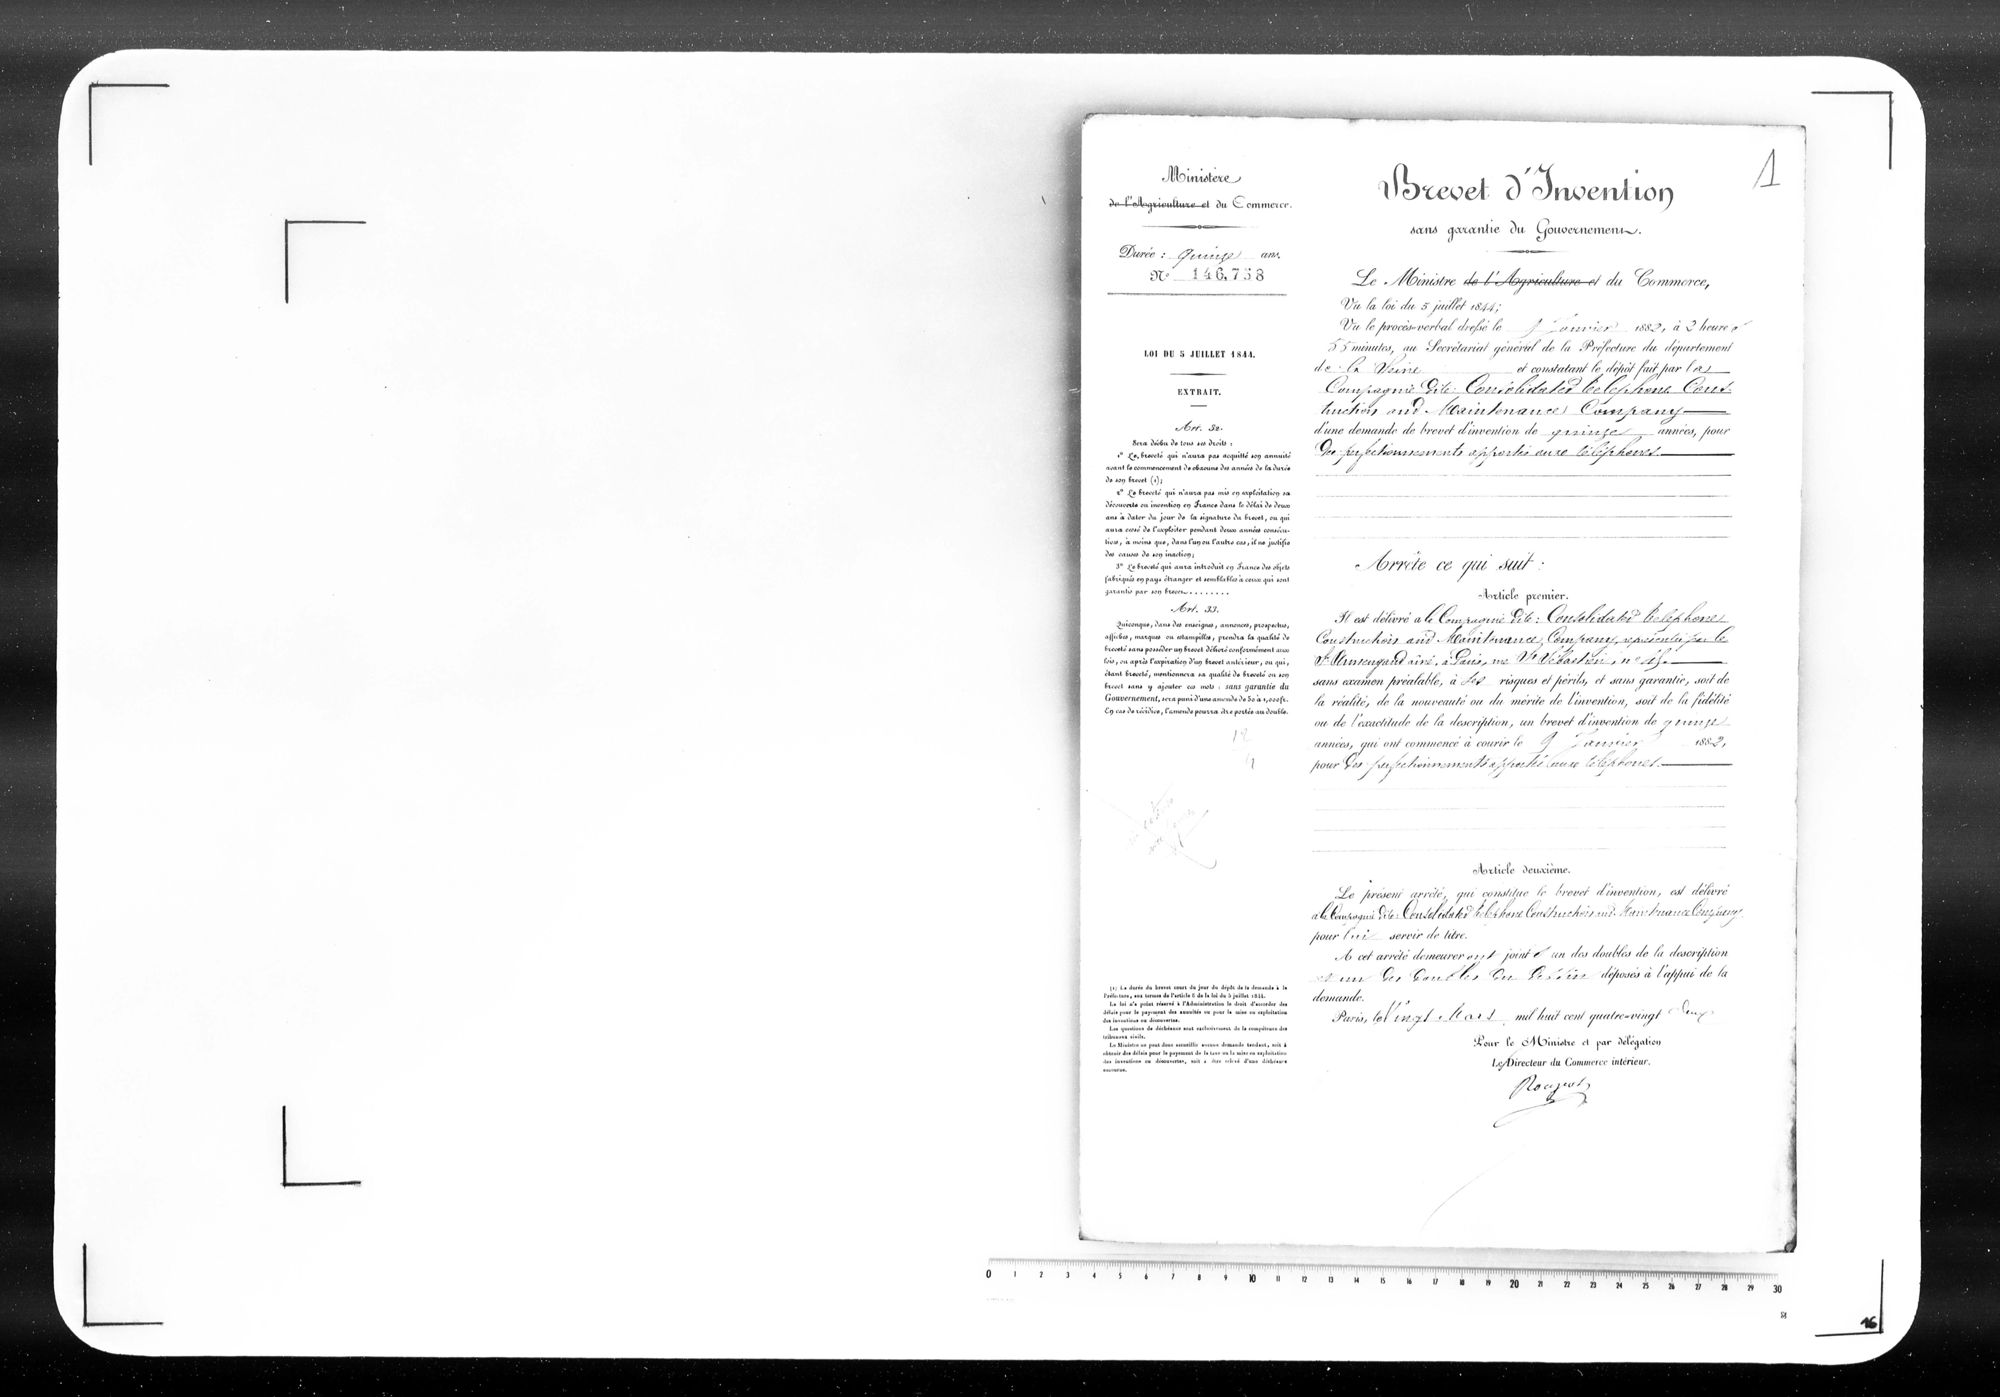 1
Ministère
de l'Agriculture et du Commerce.
Durée : quinze ans.
N° 146,758
LOI DU 5 JUILLET 1844.
EXTRAIT.
Art. 32.
Sera déchu de tous ses droits :
1° Le breveté qui n'aura pas acquitté son annuité
avant le commencement de chacune des années de la durée
de son brevet (1);
2° Le breveté qui n'aura pas mis en exploitation sa
découverte ou invention en France dans le délai de deux
ans à dater du jour de la signature du brevet, ou qui
aura cessé de l'exploiter pendant deux années consécu-
tives, à moins que, dans l'un ou l'autre cas, il ne justifie
des causes de son inaction;
3° Le breveté qui aura introduit en France des objets
fabriqués en pays étranger et semblables à ceux qui sont
garantis par son brevet........
Art. 33.
Quiconque, dans des enseignes, annonces, prospectus,
affiches, marques ou estampilles, prendra la qualité de
breveté sans posséder un brevet délivré conformément aux
lois, ou après l'expiration d'un brevet antérieur, ou qui,
étant breveté, mentionnera sa qualité de breveté ou son
brevet sans y ajouter ces mots : sans garantie du
Gouvernement, sera puni d'une amende de 50 à 1,000 fr.
En cas de récidive, l'amende pourra être portée au double.
(1) La durée du brevet court du jour du dépôt de la demande à la
Préfecture, aux termes de l'article 8 de la loi du 5 juillet 1844.
La loi n'a point réservé à l'Administration le droit d'accorder des
délais pour le payement des annuités ou pour la mise en exploitation
des inventions ou découvertes.
Les questions de déchéance sont exclusivement de la compétence des
tribunaux civils.
Le Ministre ne peut donc accueillir aucune demande tendant, soit à
obtenir des délais pour le payement de la taxe ou la mise en exploitation
des inventions ou découvertes, soit à être relevé d'une déchéance
encourue.
Brevet d'Invention
sans garantie du Gouvernement.
Le Ministre de l'Agriculture et du Commerce,
Vu la loi du 5 juillet 1844;
Vu le procès-verbal dressé le 9 Janvier 1882, à 2 heures
55 minutes, au Secrétariat général de la Préfecture du département
de la Seine et constatant le dépôt fait par la
Compagnie dite: Consolidated telephone Cons-
truction and Maintenance Company
d'une demande de brevet d'invention de quinze années, pour
des perfectionnements apportés aux téléphones.
Arrête ce qui suit :
Article premier.
Il est délivré à la Compagnie dite: Consolidated telephone
Construction and Maintenance Company, représentée par le
Sr Armengaud aîné, à Paris, rue St Sébastien, n° 45.
sans examen préalable, à ses risques et périls, et sans garantie, soit de
la réalité, de la nouveauté ou du mérite de l'invention, soit de la fidélité
ou de l'exactitude de la description, un brevet d'invention de quinze
années, qui ont commencé à courir le 9 Janvier 1882,
pour des perfectionnements apportés aux téléphones.
Article deuxième.
Le présent arrêté, qui constitue le brevet d'invention, est délivré
à la Compagnie dite: Consolidated telephone Construction and Maintenance Company
pour lui servir de titre.
A cet arrêté demeureront joints un des doubles de la description
et un des doubles du dessin déposés à l'appui de la
demande.
Paris, le Vingt Mars mil huit cent quatre-vingt deux
Pour le Ministre et par délégation
Le Directeur du Commerce intérieur.
0 1 2 3 4 5 6 7 8 9 10 11 12 13 14 15 16 17 18 19 20 21 22 23 24 25 26 27 28 29 30
16